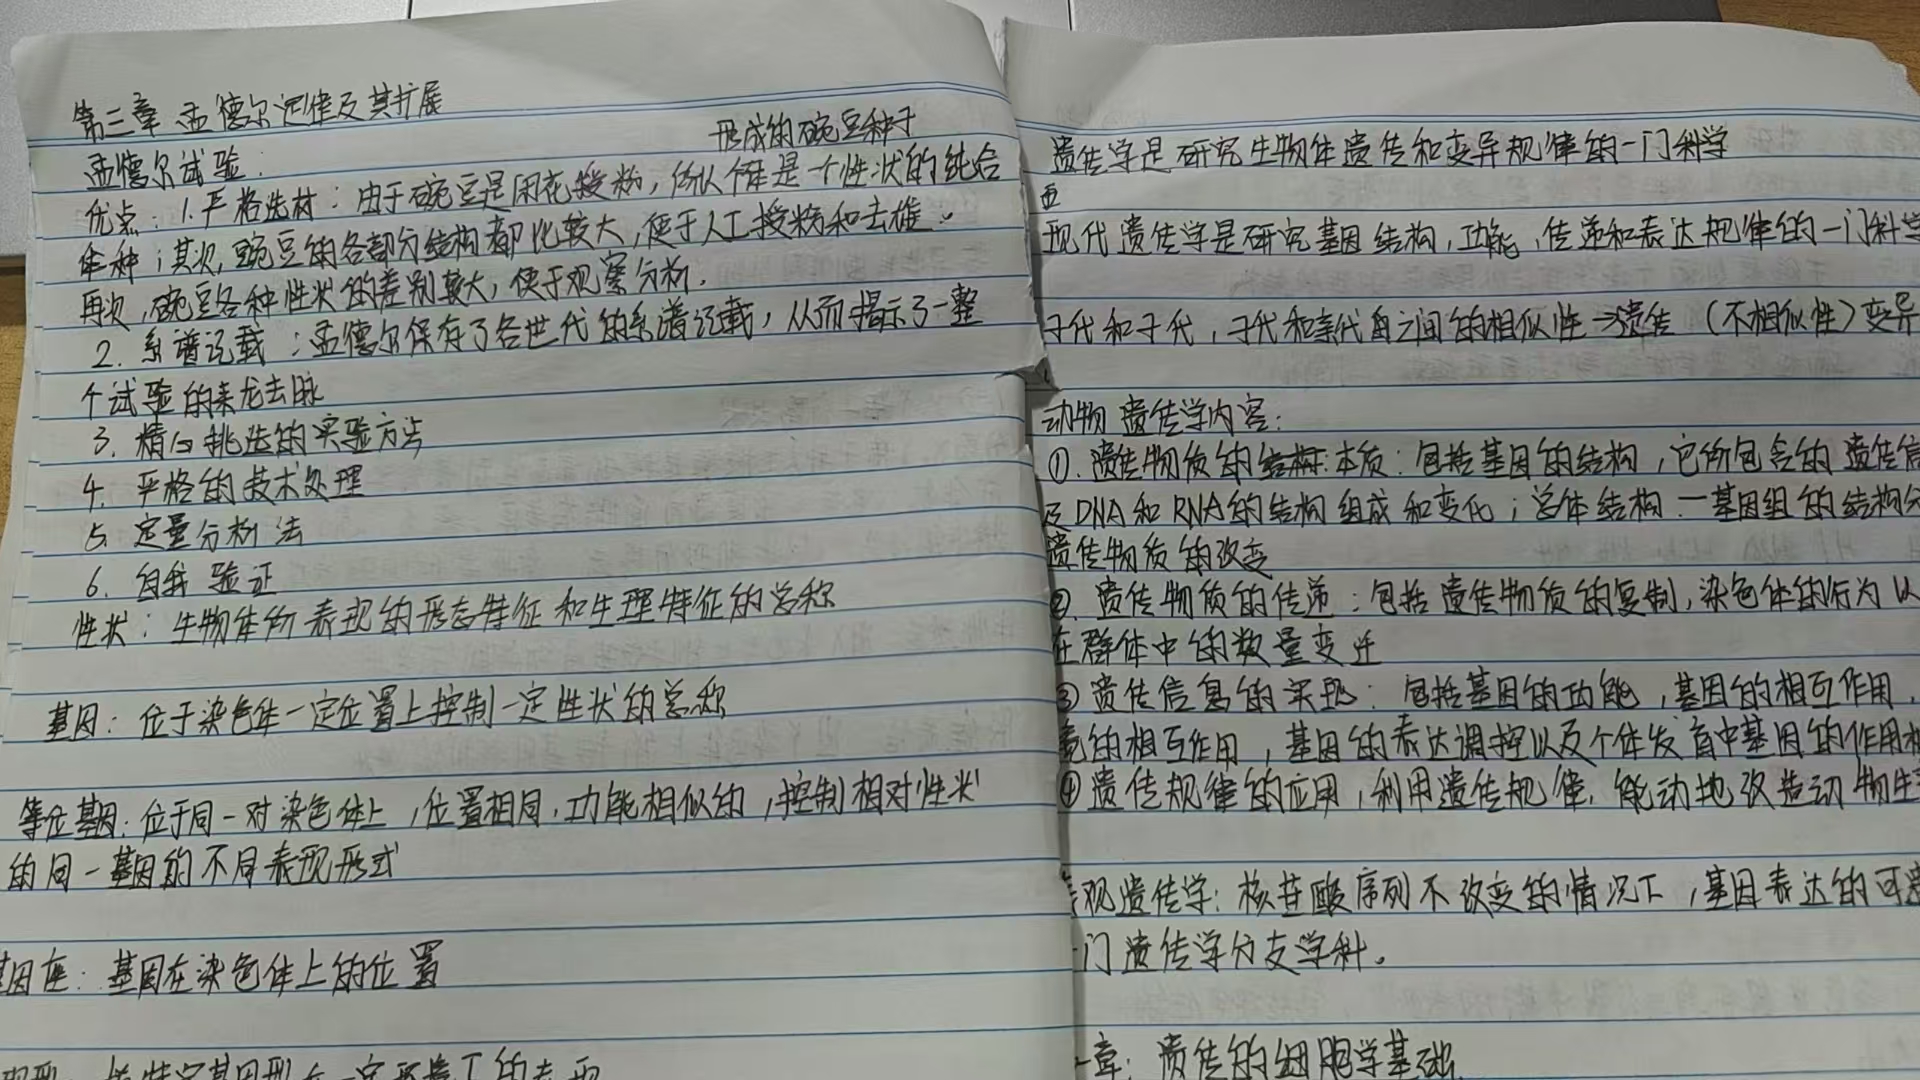 第三章 孟德尔定律及其扩展
形成的豌豆种子
孟德尔试验:
优点:1.严格选材:由于豌豆是闭花授粉,所以 是一个性状的纯合
体种;其次,豌豆的各部分结构都比较大,便于人工授粉和去雄。
再次,豌豆各种性状的差别较大,便于观察分析.
2. 系谱记载:孟德尔保存了各世代的系谱记载,从而揭示了一整
个试验的来龙去脉
3. 精心挑选的实验方法
4. 严格的技术处理
5. 定量分析法
6. 自我验证
性状:生物体所表现的形态特征和生理特征的总称
基因:位于染色体一定位置上控制一定性状的总称
等位基因:位于同一对染色体上,位置相同,功能相似的,控制相对性状
的同一基因的不同表现形式
因座:基因在染色体上的位置
遗传学是研究生物体遗传和变异规律的一门科学
现代遗传学是研究基因结构,功能,传递和表达规律的一门科学
子代和子代,子代和亲代自之间的相似性→遗传(不相似性)变异
动物遗传学内容:
①.遗传物质的本质:包括基因的结构,它所包含的遗传信
及DNA和RNA的结构组成和变化;总体结构—基因组的结构分
遗传物质的改变
②.遗传物质的传递:包括遗传物质的复制,染色体的行为以
在群体中的数量变迁
③遗传信息的实现:包括基因的功能,基因的相互作用,
的相互作用,基因的表达调控以及个体发育中基因的作用机
④遗传规律的应用,利用遗传规律,能动地改造动物生
观遗传学:核苷酸序列不改变的情况下,基因表达的可遗
一门遗传学分支学科。
章:遗传的细胞学基础